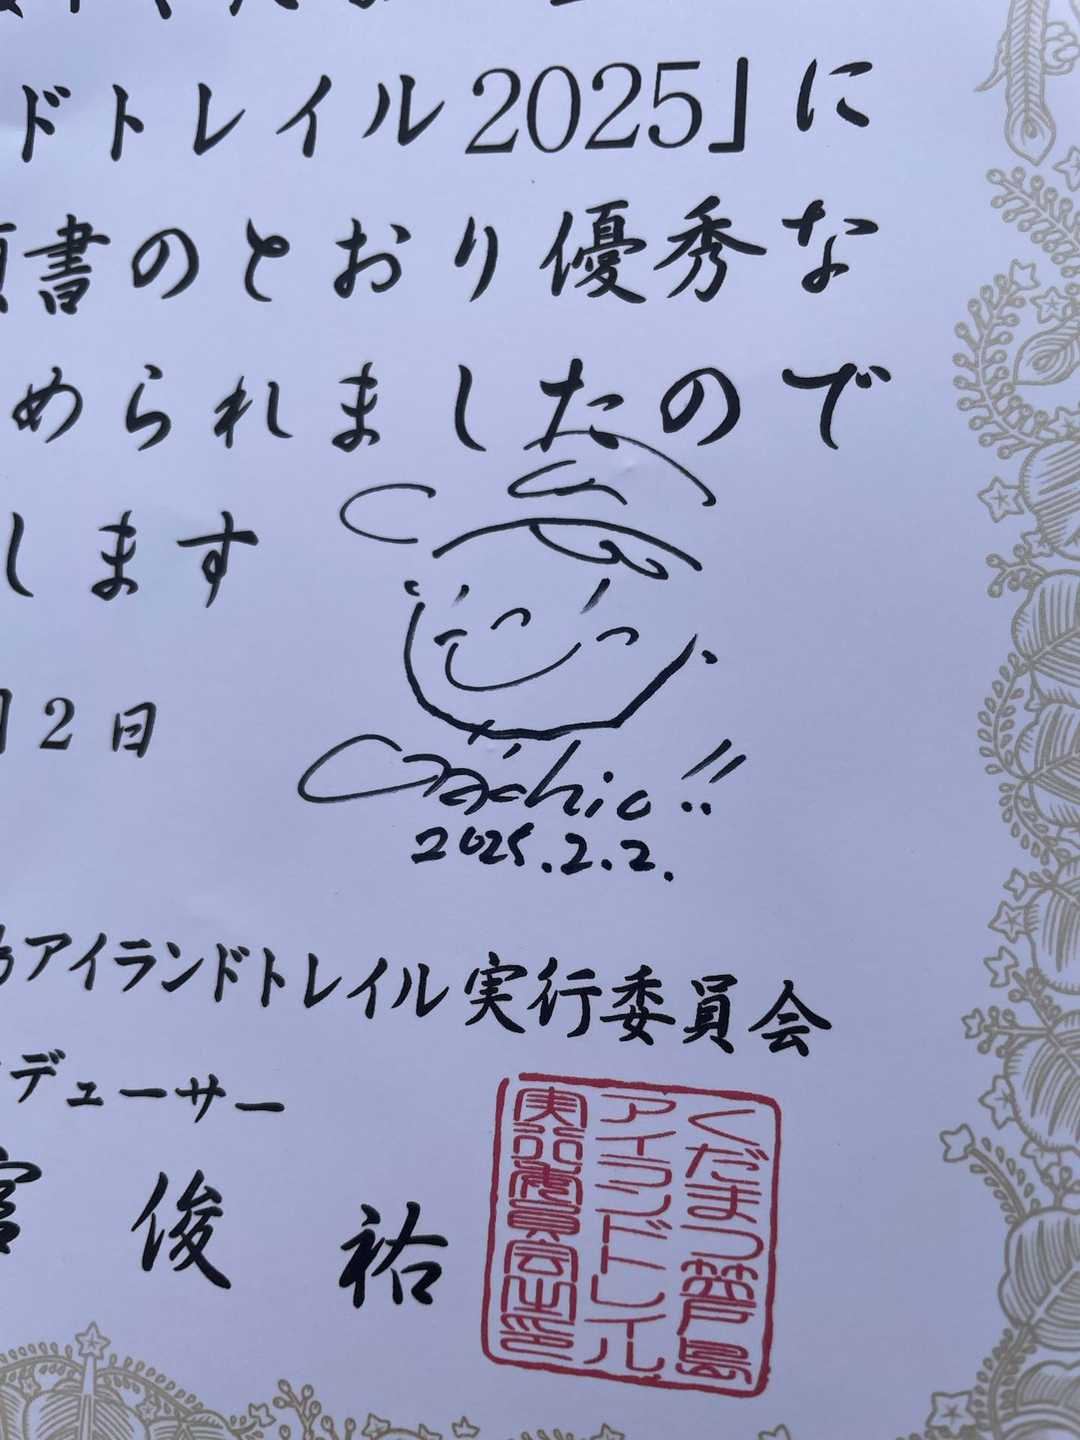 ドトレイル2025」に
書のとおり優秀な
められましたので
します
2日
2025.2.2.
アイランドトレイル実行委員会
デューサー
俊祐
くだまつ笠戸島
アイランドトレイル
実行委員会之印